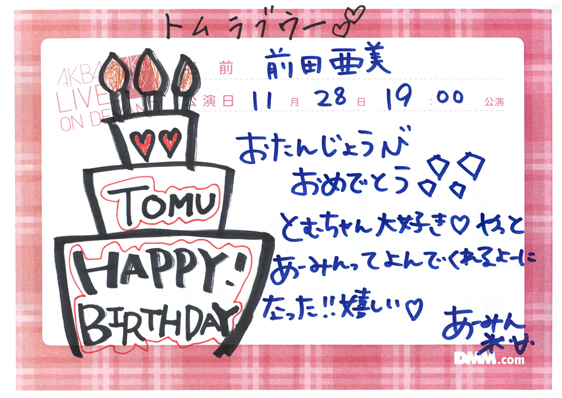 トムラブウー♡♡
AKB48
LIVE
ON DEMAND
前 前田亜美
公演日 11月28日 19:00公演
おたんじょうび
おめでとう
とむちゃん大好き♡ やっと
あーみんってよんでくれるよーに
なった!!嬉しい♡
あーみん
TOMU
HAPPY!
BIRTHDAY
DMM.com